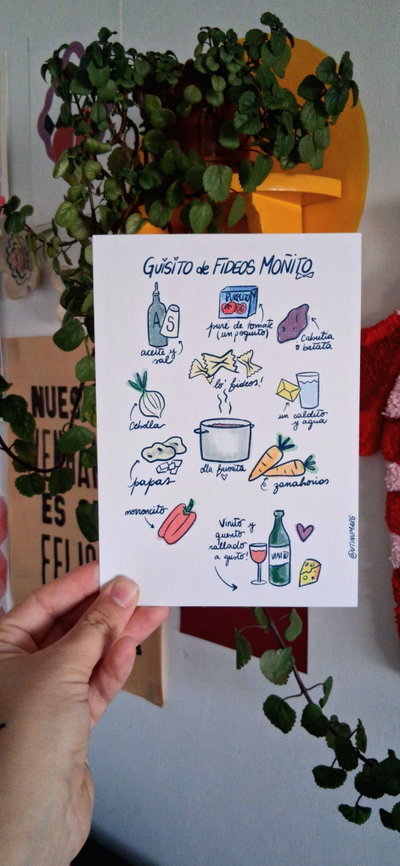 GUISITO de FIDEOS MOÑITO
A S
aceite y
sal
puré de tomate
(un poquito)
Cabutia
o batata
lo' fideos!
Cebolla
un caldito
y agua
papas
olla favorita
zanahorias
morroncito
Vinito y
quesito
rallado
a gusto!
VINITO
NUES
ES
FELIC